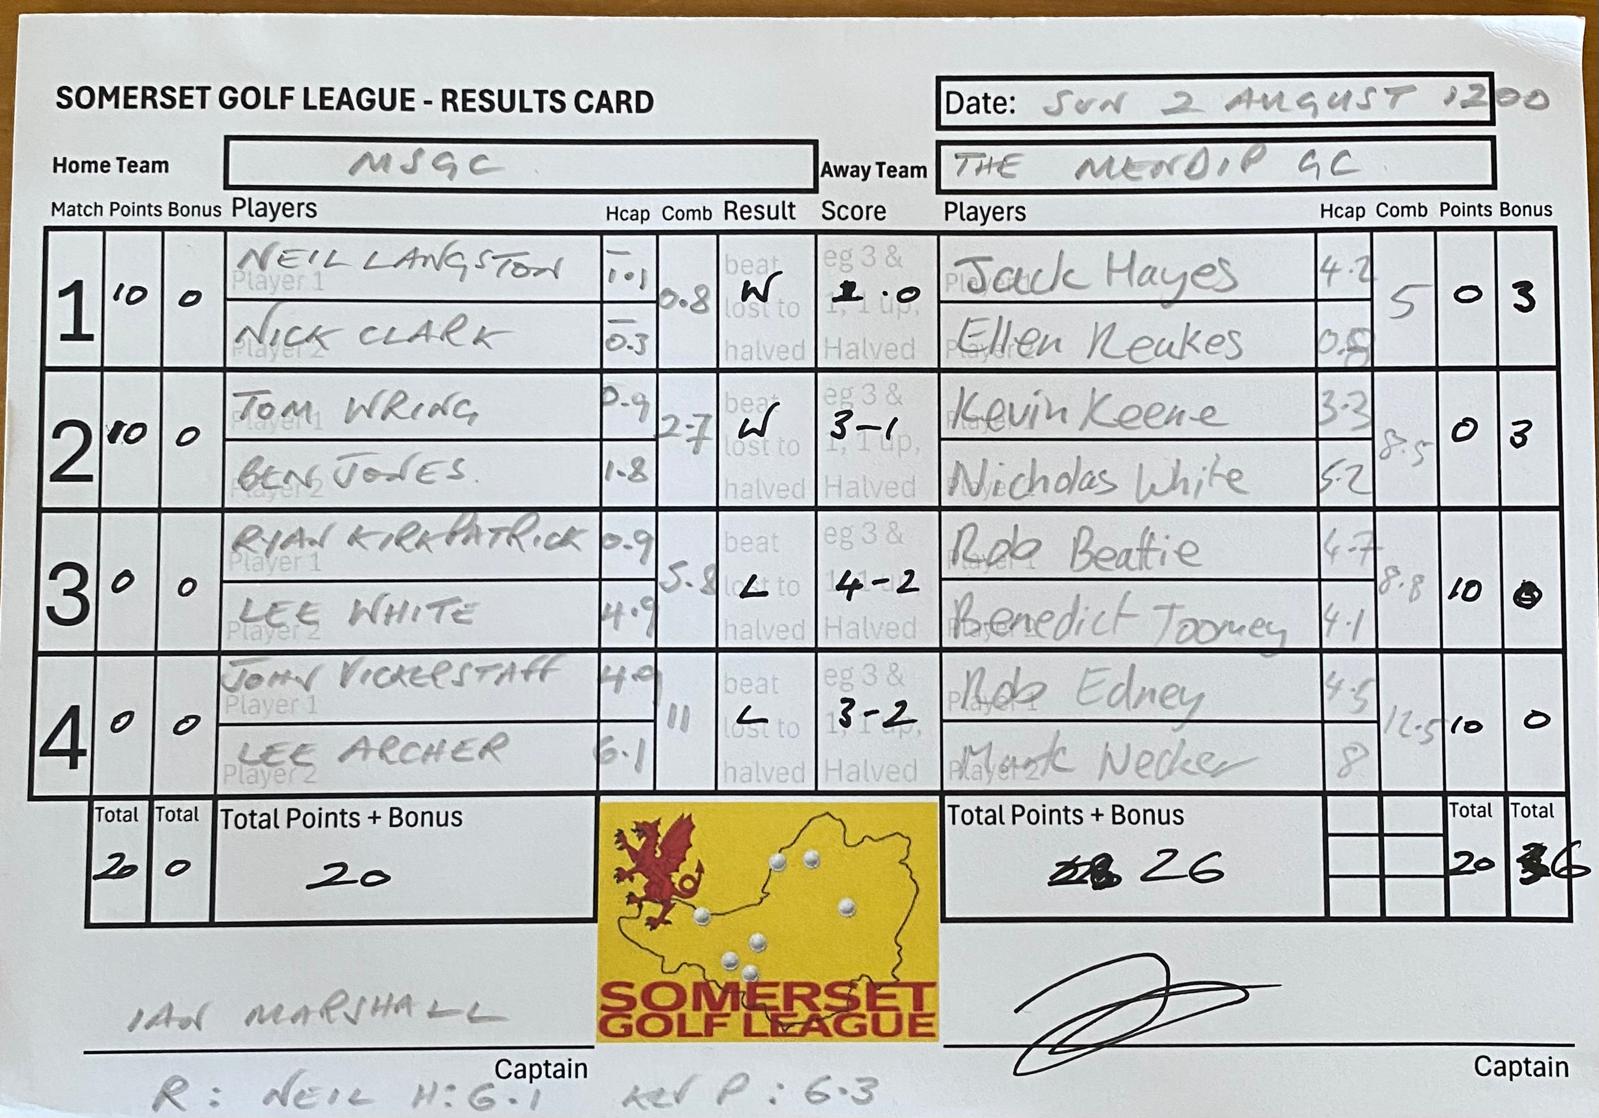 SOMERSET GOLF LEAGUE - RESULTS CARD
Date: SUN 2 AUGUST 1200
Home Team MSGC Away Team THE MENDIP GC
Match Points Bonus Players Hcap Comb Result Score Players Hcap Comb Points Bonus
1 10 0 0.8 W 1.0 5 0 3
NEIL LANGSTON 1.1 Jack Hayes 4.2
Player 1 beat eg 3 &
lost to 1, 1 up,
NICK CLARK 0.3 Ellen Reakes 0.8
Player 2 halved Halved
2 10 0 2.7 W 3-1 8.5 0 3
TOM WRING 0.9 Kevin Keene 3.3
Player 1 beat eg 3 &
lost to 1, 1 up,
BEN JONES. 1.8 Nicholas White 5.2
Player 2 halved Halved
3 0 0 5.8 L 4-2 8.8 10 0
RYAN KIRKPATRICK 0.9 Rob Beattie 4.7
Player 1 beat eg 3 &
lost to
LEE WHITE 4.9 Benedict Toomey 4.1
Player 2 halved Halved
4 0 0 11 L 3-2 12.5 10 0
JOHN VICKERSTAFF 4.9 Rob Edney 4.5
Player 1 beat eg 3 &
lost to 1, 1 up,
LEE ARCHER 6.1 Mark Necker 8
Player 2 halved Halved
Total Total Total Points + Bonus Total Points + Bonus Total Total
20 0 20 26 20 6
SOMERSET
GOLF LEAGUE
IAN MARSHALL
Captain Captain
R: NEIL H: 6.1 KEV P: 6.3